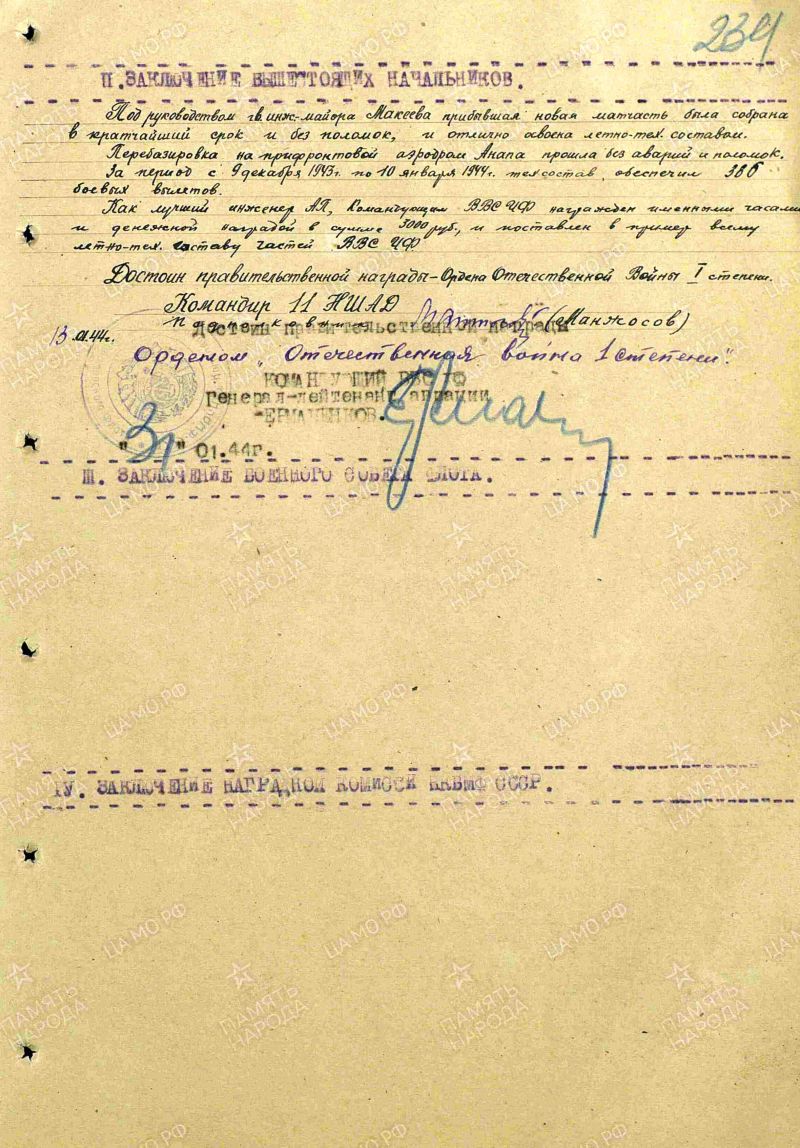 234
II. ЗАКЛЮЧЕНИЕ ВЫШЕСТОЯЩИХ НАЧАЛЬНИКОВ.
Под руководством гв. инж-майора Макеева прибывшая новая матчасть была собрана
в кратчайший срок и без поломок, и отлично освоена летно-тех. составом.
Перебазировка на прифронтовой аэродром Анапа прошла без аварий и поломок.
За период с 9 декабря 1943г. по 10 января 1944г. техсостав, обеспечил 386
боевых вылетов.
Как лучший инженер АП, Командующим ВВС ЧФ награжден именными часами
и денежной наградой в сумме 3000 руб., и поставлен в пример всему
летно-тех. составу частей ВВС ЧФ.
Достоин правительственной награды - Ордена Отечественной Войны I степени.
Командир 11 НШАД
подполковник (Манжосов)
13.01.44г.
Достоин правительственной награды
Орденом „Отечественная война 1 степени".
КОМАНДУЮЩИЙ ВВС ЧФ
Генерал-лейтенант авиации
ЕРМАЧЕНКОВ.
"31" 01.44г.
Ш. ЗАКЛЮЧЕНИЕ ВОЕННОГО СОВЕТА ФЛОТА.
IУ. ЗАКЛЮЧЕНИЕ НАГРАДНОЙ КОМИССИ НКВМФ СССР.
ПАМЯТЬ НАРОДА
ЦА МО.РФ